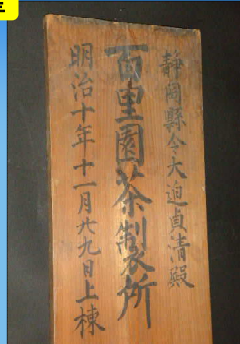 静岡縣令大迫貞清殿
百里園茶製所
明治十年十一月六九日上棟